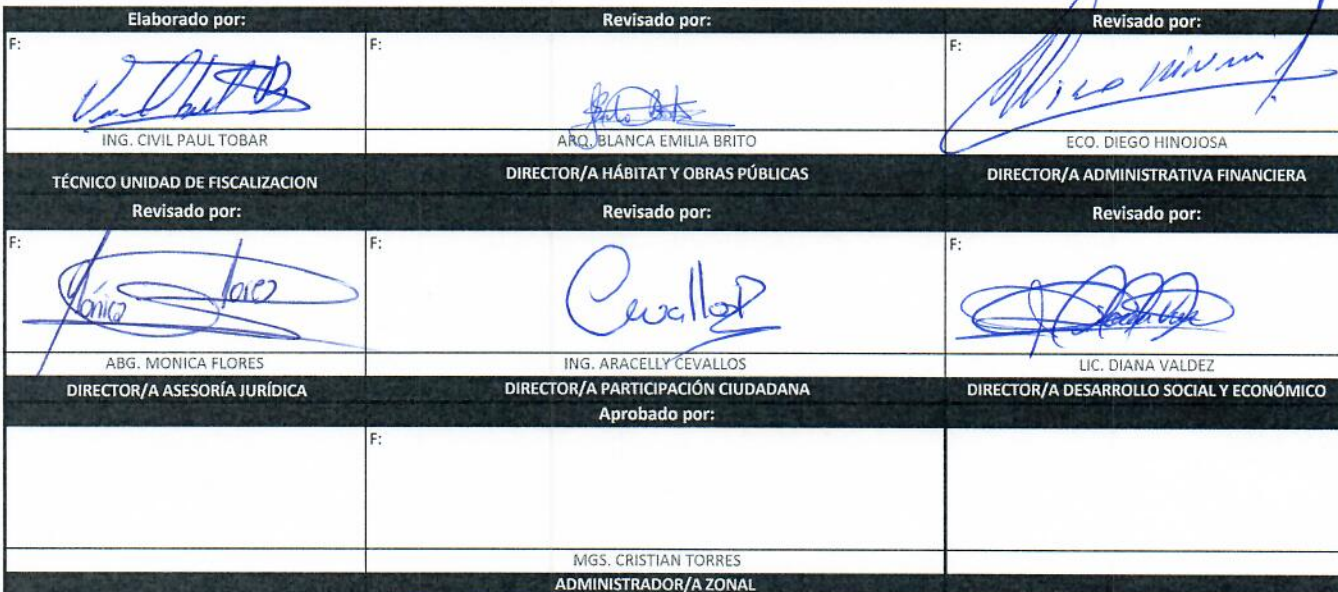 Elaborado por: Revisado por: Revisado por:
F: F: F:
ING. CIVIL PAUL TOBAR ARQ. BLANCA EMILIA BRITO ECO. DIEGO HINOJOSA
TÉCNICO UNIDAD DE FISCALIZACION DIRECTOR/A HÁBITAT Y OBRAS PÚBLICAS DIRECTOR/A ADMINISTRATIVA FINANCIERA
Revisado por: Revisado por: Revisado por:
F: F: F:
Mónica Flores Cevallos
ABG. MONICA FLORES ING. ARACELLY CEVALLOS LIC. DIANA VALDEZ
DIRECTOR/A ASESORÍA JURÍDICA DIRECTOR/A PARTICIPACIÓN CIUDADANA DIRECTOR/A DESARROLLO SOCIAL Y ECONÓMICO
Aprobado por:
F:
MGS. CRISTIAN TORRES
ADMINISTRADOR/A ZONAL